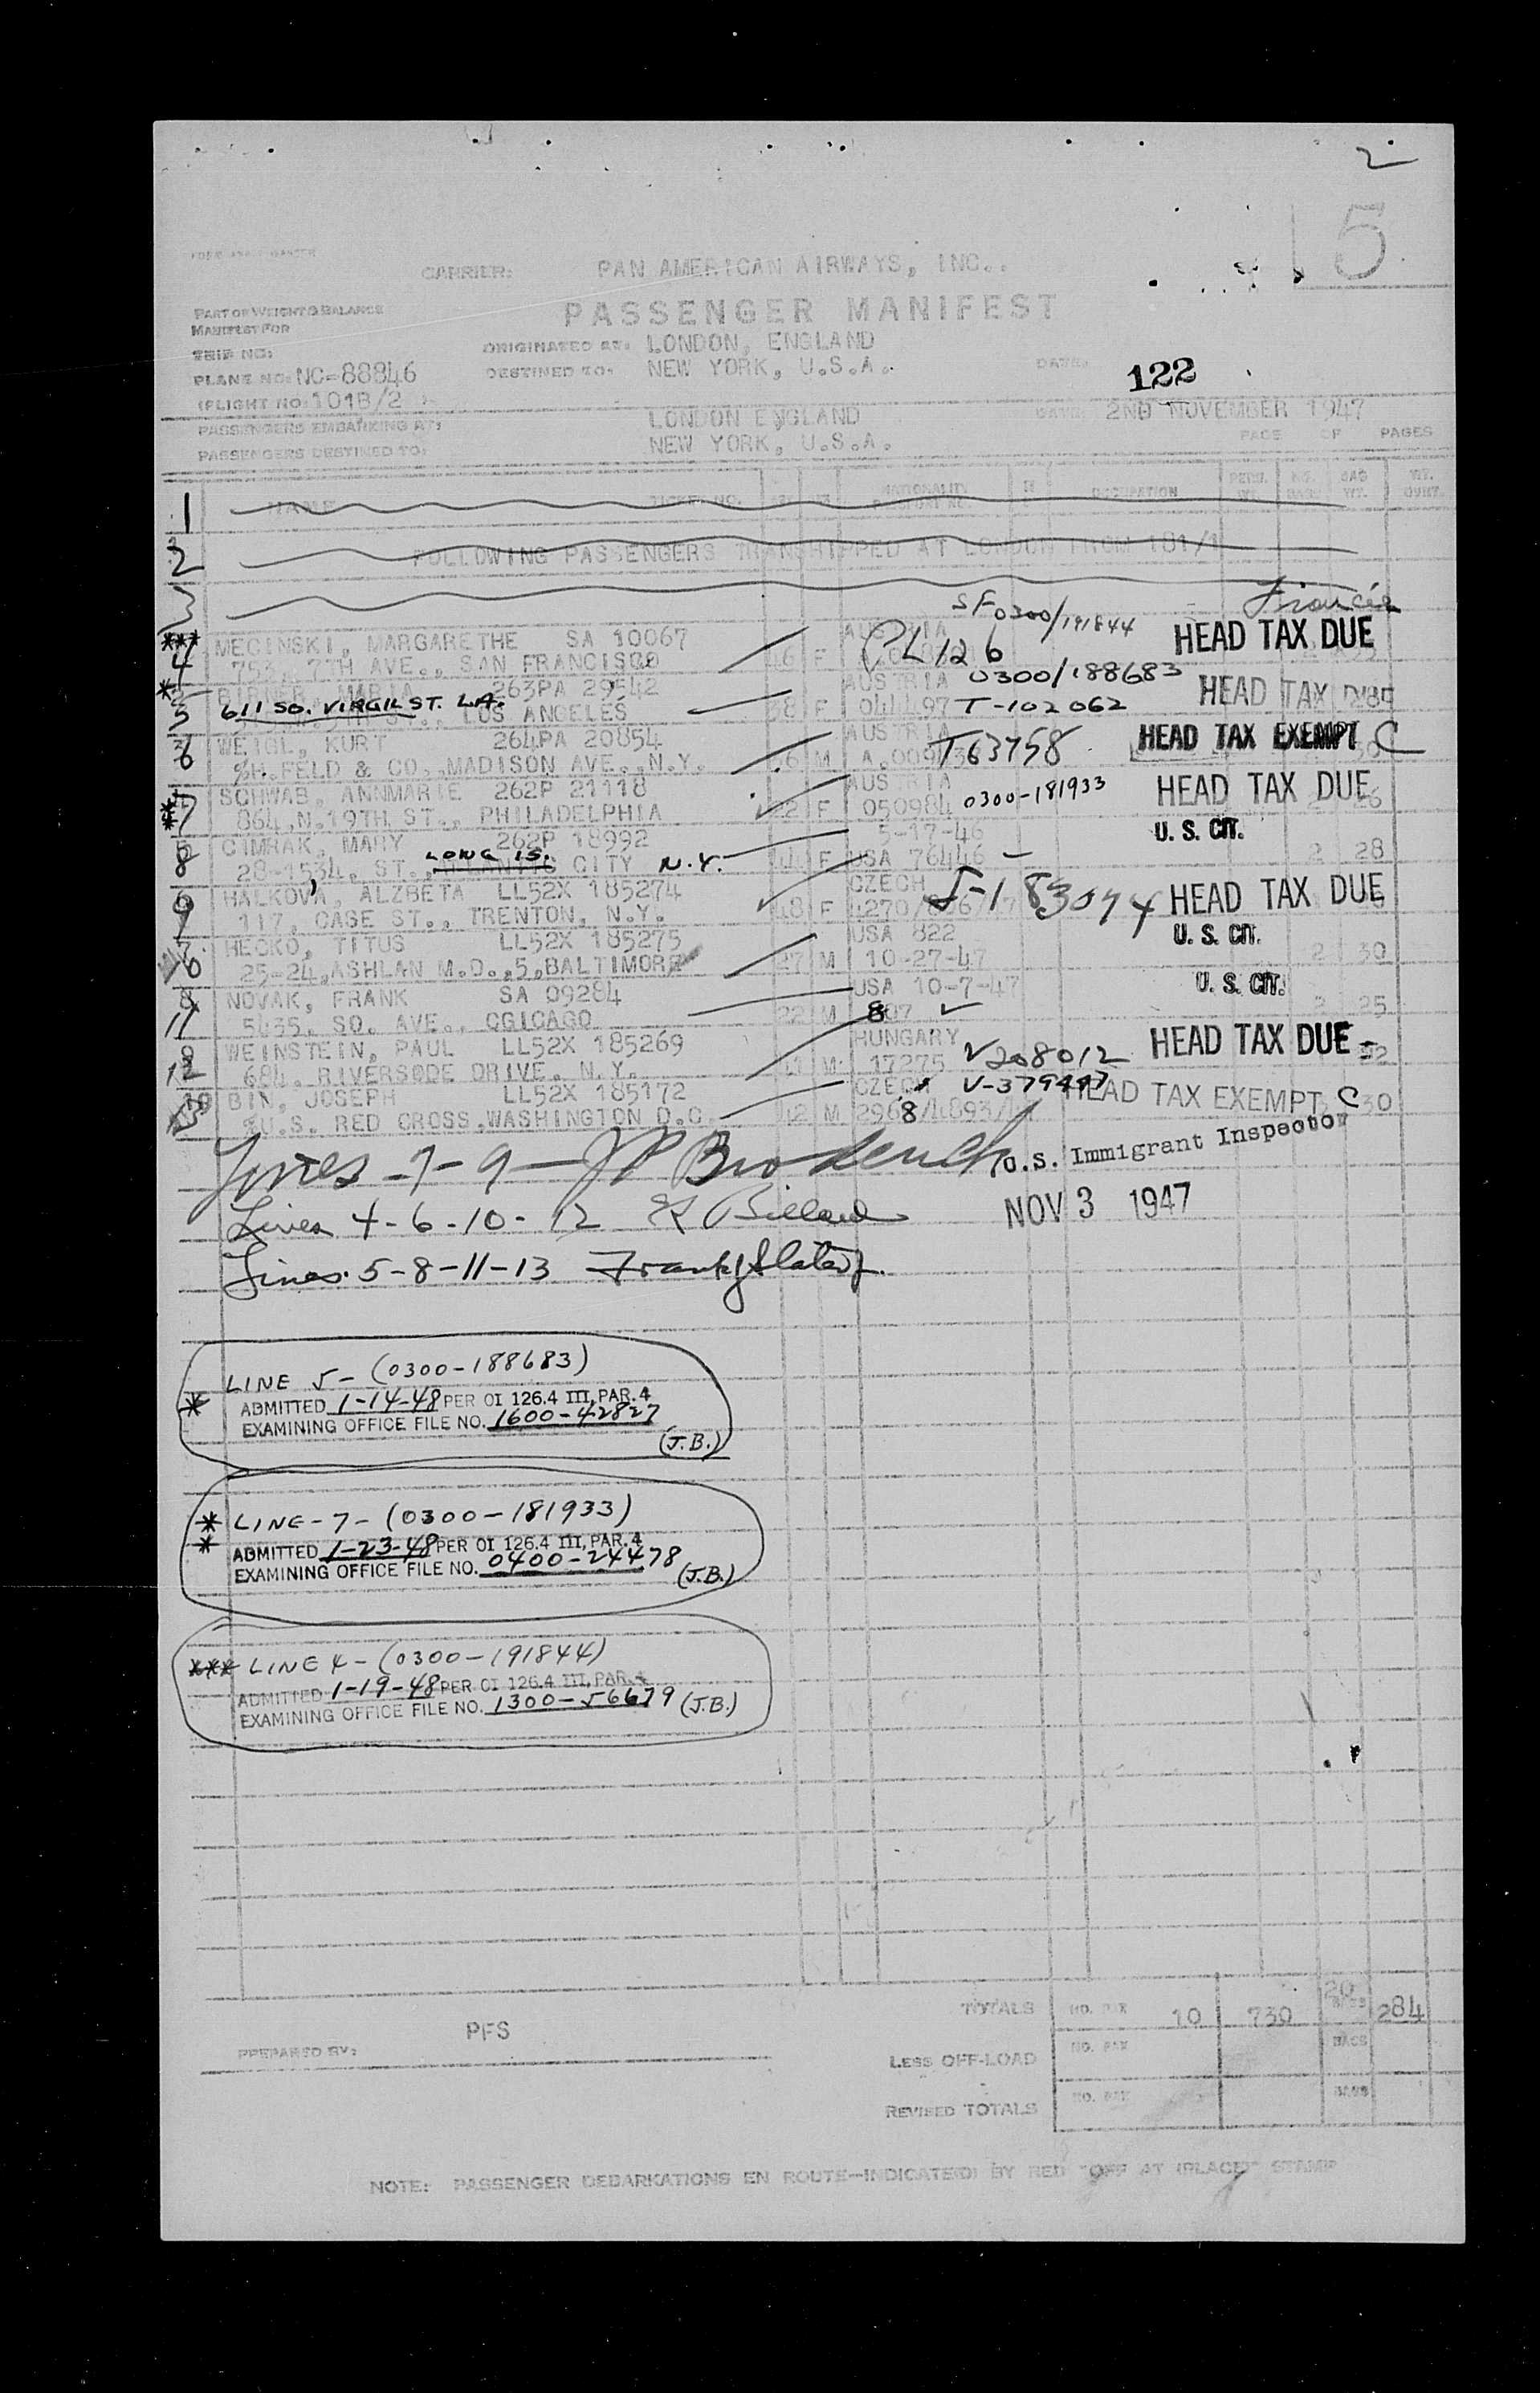 2
5
CARRIER: PAN AMERICAN AIRWAYS, INC..
PASSENGER MANIFEST
PART OF WEIGHT & BALANCE
MANIFEST FOR
TRIP NO:
ORIGINATED AT: LONDON, ENGLAND
PLANE NO: NC-88846
DESTINED TO: NEW YORK, U.S.A.
DATE:
122
(FLIGHT NO: 101B/2 )
PASSENGERS EMBARKING AT: LONDON ENGLAND
DATE: 2ND NOVEMBER 1947
PASSENGERS DESTINED TO: NEW YORK, U.S.A.
PAGE OF PAGES
1 NAME TICKET NO. NATIONALITY PASSPORT NO. OCCUPATION
2 FOLLOWING PASSENGERS TRANSHIPPED AT LONDON FROM 181/1
3
SF 0300/191844 Fiancée
*** MECINSKI, MARGARETHE SA 10067 AUSTRIA HEAD TAX DUE
4 753, 7TH AVE., SAN FRANCISCO 46 F PL 126
* BIRNER, MARIA 263PA 29542 AUSTRIA 0300/188683 HEAD TAX DUE
5 611 SO. VIRGIL ST. L.A. LOS ANGELES 38 F 041497 T-102062
WEIGL, KURT 264PA 20854 AUSTRIA HEAD TAX EXEMPT C
6 %H.FELD & CO.,MADISON AVE.,N.Y. M T63758
SCHWAB, ANNMARIE 262P 21118 AUSTRIA HEAD TAX DUE
7 864,N.19TH ST., PHILADELPHIA 22 F 050984 0300-181933
CIMRAK, MARY 262P 18992 5-17-46 U. S. CIT.
8 28-1534, ST., LONG IS. CITY N.Y. 44 F USA 76446 2 28
HALKOVA, ALZBETA LL52X 185274 CZECH HEAD TAX DUE
9 117, CASE ST., TRENTON, N.Y. 48 F J-183074
HECKO, TITUS LL52X 185275 USA 822 U. S. CIT.
10 25-24,ASHLAN M.D.,5,BALTIMORE 27 M 10-27-47 2 30
NOVAK, FRANK SA 09284 USA 10-7-47 U. S. CIT.
11 5455, SO. AVE., CGICAGO 22 M 887 2 25
WEINSTEIN, PAUL LL52X 185269 HUNGARY HEAD TAX DUE
12 684, RIVERSODE DRIVE, N.Y. M 17275 V208012
BIN, JOSEPH LL52X 185172 CZECH V-379447 HEAD TAX EXEMPT C 30
13 %U.S. RED CROSS,WASHINGTON D.C. 42 M 2968/4893/
Lines - 7-9 - U.S. Immigrant Inspector
Lines 4-6-10-12 Billard
NOV 3 1947
Lines 5-8-11-13 Frank J Slater
LINE 5- (0300-188683)
* ADMITTED 1-14-48 PER OI 126.4 III, PAR. 4
EXAMINING OFFICE FILE NO. 1600-42827
(J.B.)
* LINE-7- (0300-181933)
* ADMITTED 1-23-48 PER OI 126.4 III, PAR. 4
EXAMINING OFFICE FILE NO. 0400-24478 (J.B.)
*** LINE 4- (0300-191844)
ADMITTED 1-19-48 PER OI 126.4 III, PAR. 4
EXAMINING OFFICE FILE NO. 1300-56679 (J.B.)
TOTALS NO. PAX 10 730 20 BAGS 284
PREPARED BY: PFS
LESS OFF-LOAD NO. PAX BAGS
REVISED TOTALS NO. PAX BAGS
NOTE: PASSENGER DEBARKATIONS EN ROUTE—INDICATED BY RED "OFF AT (PLACE)" STAMP